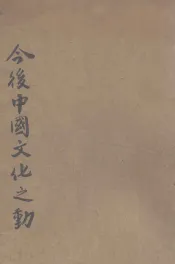 今後中國文化之動